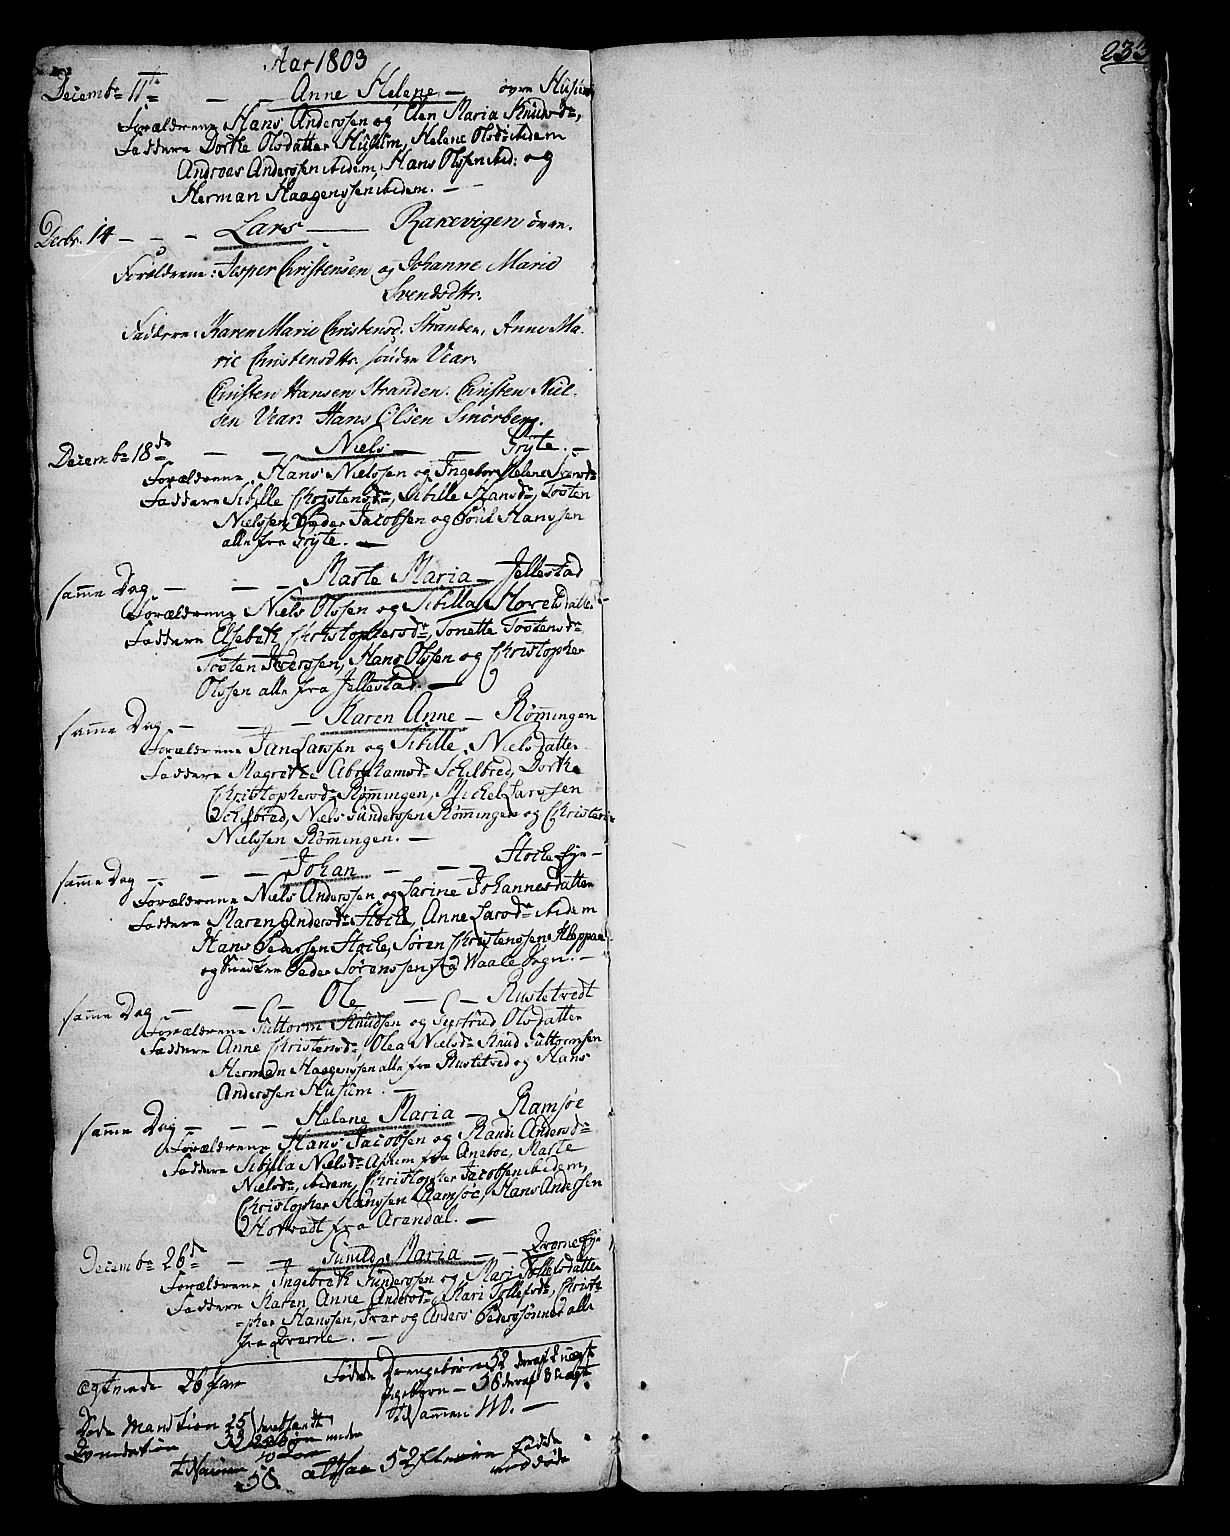 Aar 1803
233
Decemb: 11te — — Anne Helene — övre Husum
Forældrene Hans Anderssen og Elen Maria Knudsd:
Faddere Dorthe Olsdatter Husum, Helene Olsd: ibidem
Andreas Anderssen ibidem, Hans Olssen ibid: og
Herman Haagenssen ibidem. —
Decbr. 14 — — — Lars — Rakevigen övre.
Forældrene: Jesper Christensen og Johanne Marie
Svendsdttr.
Faddere: Karen Marie Christensd. Stranden, Anne Ma-
rie Christensdttr. söndre Vear.
Christen Hansen Stranden. Christen Niel-
sen Vear. Hans Olsen Smörberg.
Decemb: 18de — — Niels — Gryte. —
Forældrene Hans Nielssen og Ingebor Helene Iversd:
Faddere Sibille Chorstensd:, Sibille Hansd:, Tosten
Nielssen, Peder Jacobssen og Poul Hanssen
alle fra Gryte. —
samme Dag — — Marte Maria — Jellestad
Forældrene Niels Olssen og Sibilla Hovelsdatter
Faddere Elsebeth Christophersd:, Tonette Tostensd:
Tosten Iverssen, Hans Olssen og Christopher
Olssen alle fra Jellestad. —
samme Dag — — Karen Anne — Römmingen
Forældrene Jan Larssen og Sibille Nielsdatter
Faddere Magrethe Abrahamsd: Schilbred, Dorthe
Christophersd: Römmingen, Mickel Larssen
Schilbred, Niels Gunderssen Römmingen og Christen
Nielssen Römmingen. —
samme Dag — — — Johan — — — Hoche Eje —
Forældrene Niels Anderssen og Sarine Johannesdatter
Faddere Maren Andersd: Hoche, Anne Larsd: ibidem
Hans Pederssen Hoche, Sören Christenssen Kloppae
og Snedker Peder Sörenssen fra Waale Sogn. —
samme Dag — — Ole — — Rustetvedt
Forældrene Guttorm Knudsen og Giertrud Olsdatter
Faddere Anne Christensd:, Olea Nielsd: Knud Guttormsen
Herman Haagenssen alle fra Rustetved og Hans
Anderssen Husum. —
samme Dag — — Helene Maria — Ramsöe
Forældrene Hans Jacobsen og Randi Andersd:
Faddere Sibilla Nielsd: fra Aneboe, Marte
Nielsd: ibidem, Christopher Jacobsen ibidem,
Christopher Hanssen Ramsöe, Hans Andersen
Hotvedt fra Arendal. —
Decemb: 26de — — Gunild Maria — — Qværne Eje
Forældrene Ingebreth Gunderssen og Mari Tollefsdatter
Faddere Karen Anne Andersd:, Mari Tollefsd:, Christo-
-pher Hanssen, Ivar og Anders Pederssönner alle
fra Qværne. —
Egteviede 26 Par
Födde Drengebörn 52 deraf 2 uægt
Pigebörn — 58 deraf 3 uægt
tilsammen 110. —
Döde Mandkiön 25
Qvindekiön 33
tilsammen 58. altsaa 52 flere födde
end döde